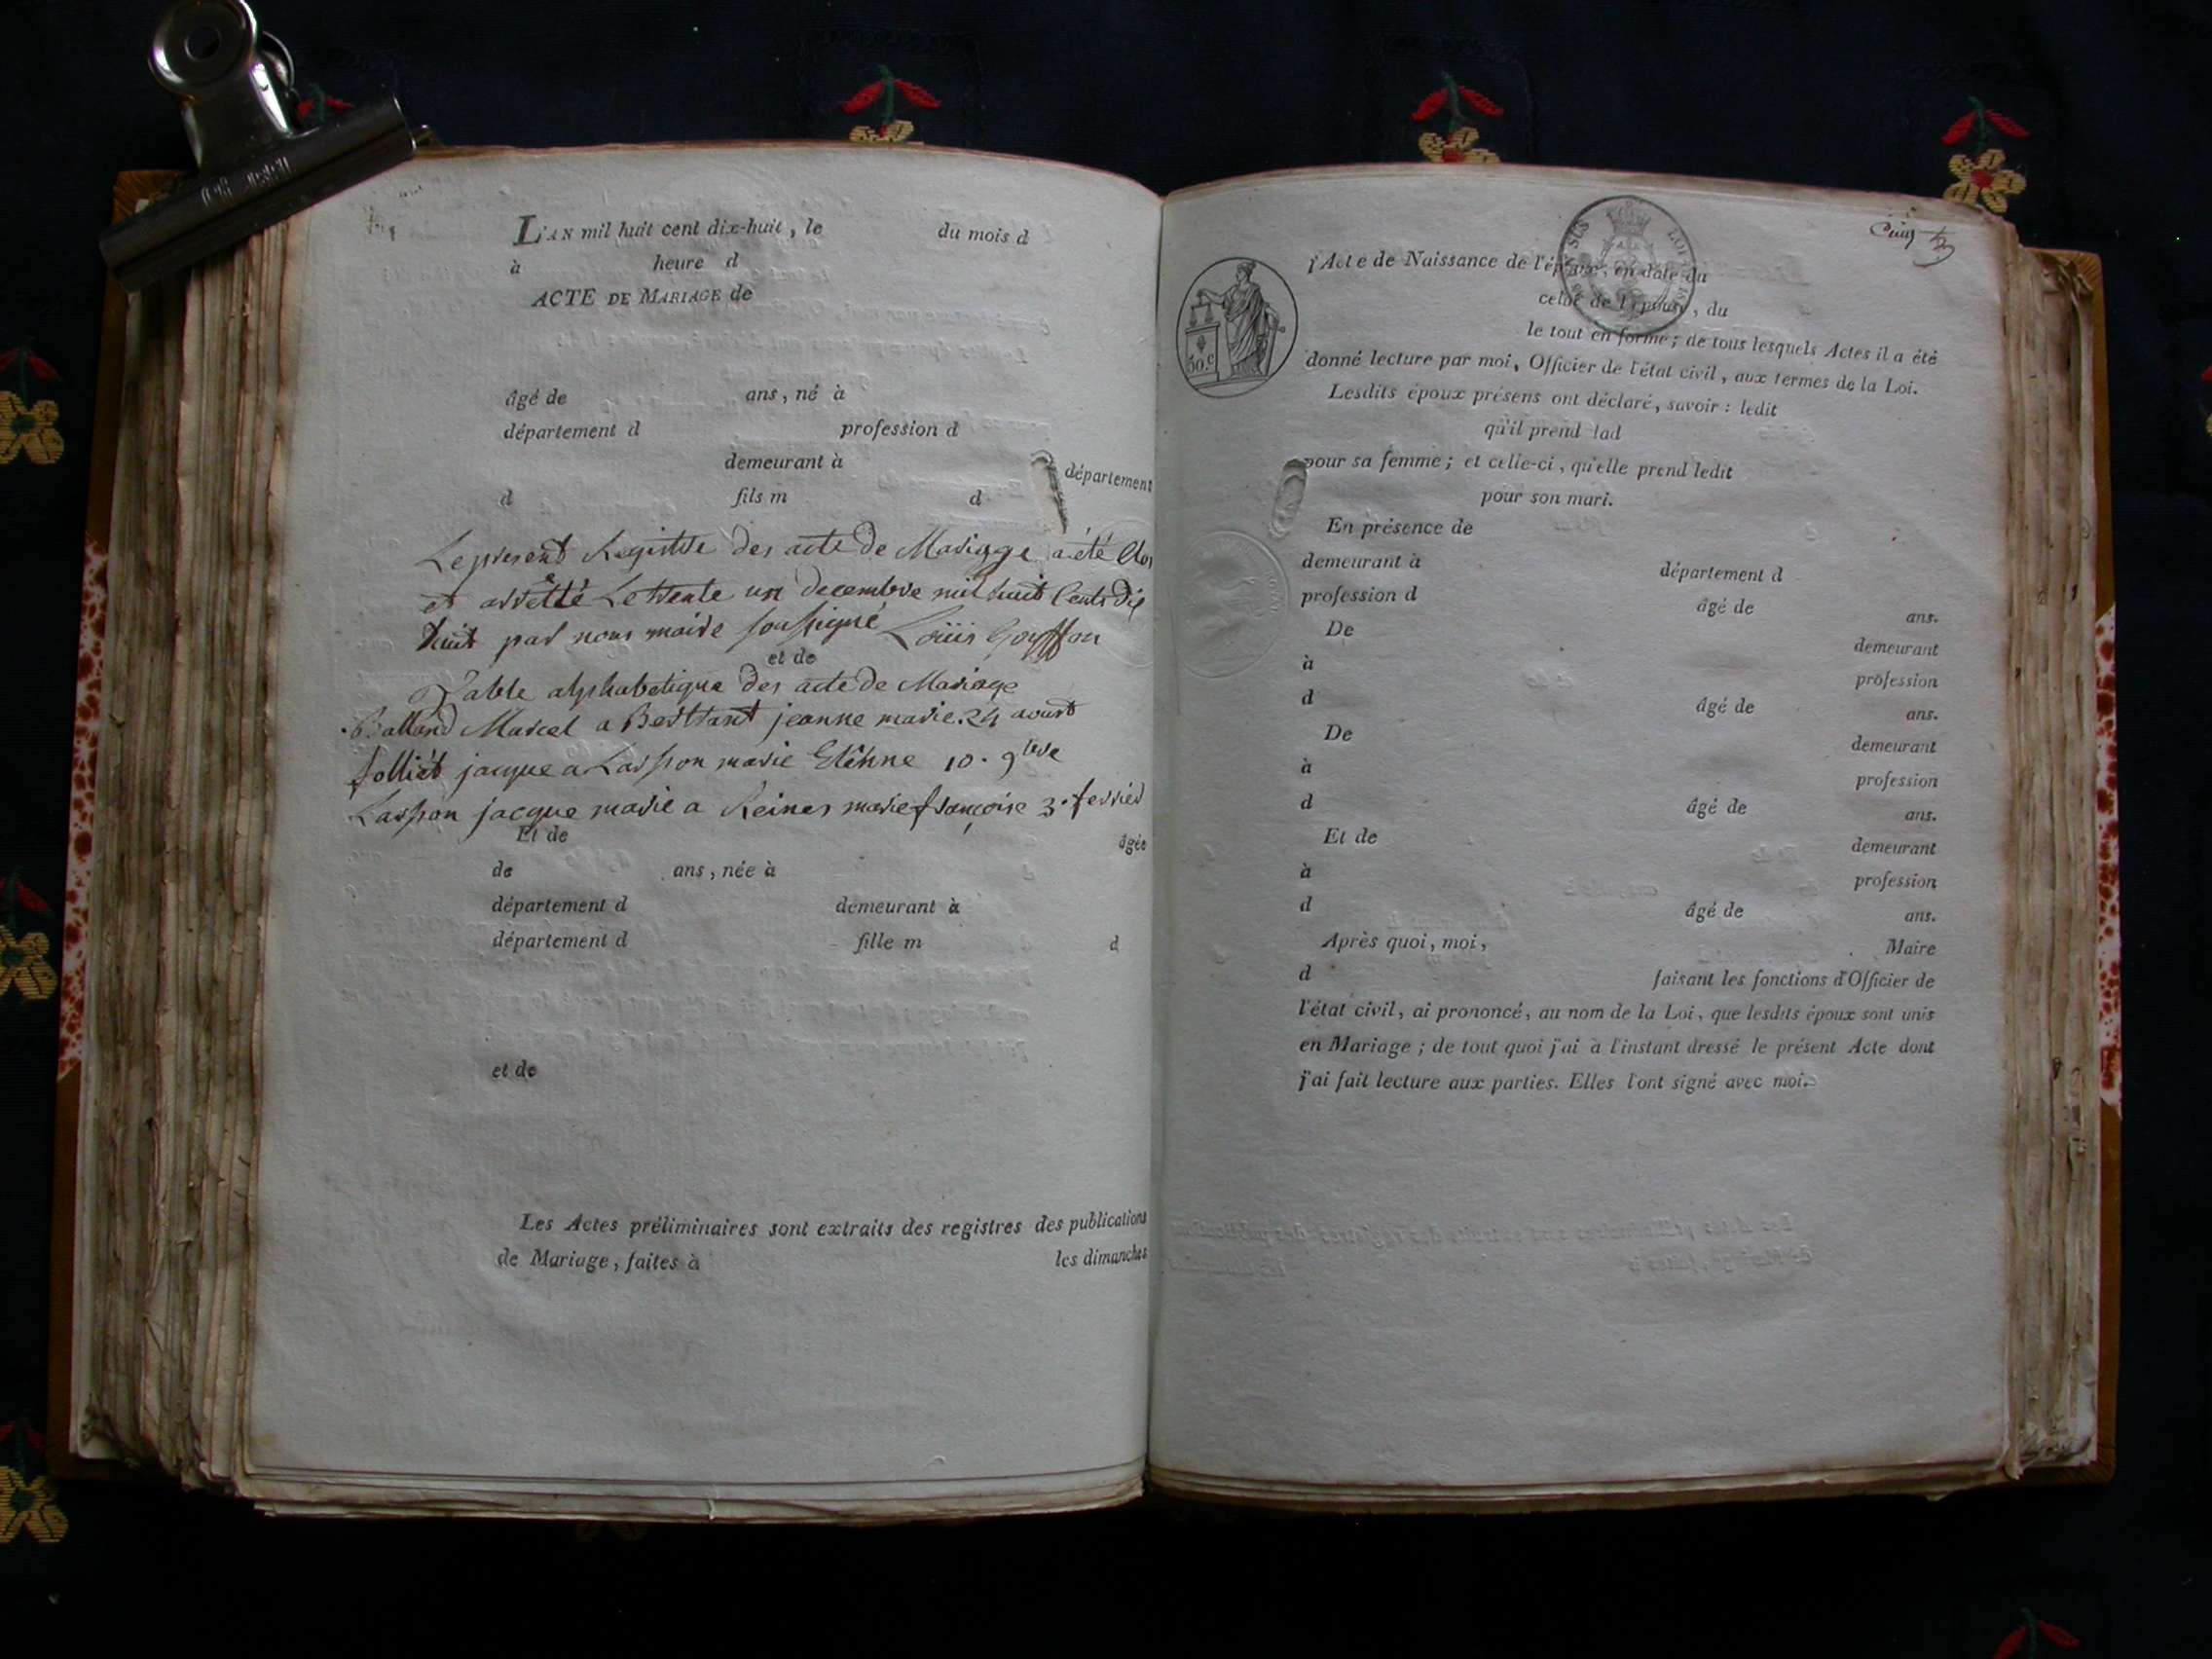 L'AN mil huit cent dix-huit, le du mois d
à heure d
ACTE DE MARIAGE de
âgé de ans, né à
département d profession d
demeurant à département
d fils m d
Le present Registre des acte de Mariage a été Clos
et arretté Le trente un decembre mil huit Cents dix
huit par nous maire soussigné Loüis Gouffon
et de
Table alphabetique des acte de Mariage
Balland Marcel a Berttant jeanne marie. 24 aoust
folliet jacque a Lasson marie Etienne 10. 9bre
Lasson jacque marie a Reines marie françoise 3. fevrier
Et de âgée
de ans, née à
département d demeurant à
département d fille m d
et de
Les Actes préliminaires sont extraits des registres des publications
de Mariage, faites à les dimanches
Cinq
l'Acte de Naissance de l'époux, en date du
celui de l'épouse, du
le tout en forme; de tous lesquels Actes il a été
50.c
donné lecture par moi, Officier de l'état civil, aux termes de la Loi.
Lesdits époux présens ont déclaré, savoir: ledit
qu'il prend lad
pour sa femme; et celle-ci, qu'elle prend ledit
pour son mari.
En présence de
demeurant à département d
profession d âgé de ans.
De demeurant
à profession
d âgé de ans.
De demeurant
à profession
d âgé de ans.
Et de demeurant
à profession
d âgé de ans.
Après quoi, moi, Maire
d faisant les fonctions d'Officier de
l'état civil, ai prononcé, au nom de la Loi, que lesdits époux sont unis
en Mariage; de tout quoi j'ai à l'instant dressé le présent Acte dont
j'ai fait lecture aux parties. Elles l'ont signé avec moi.